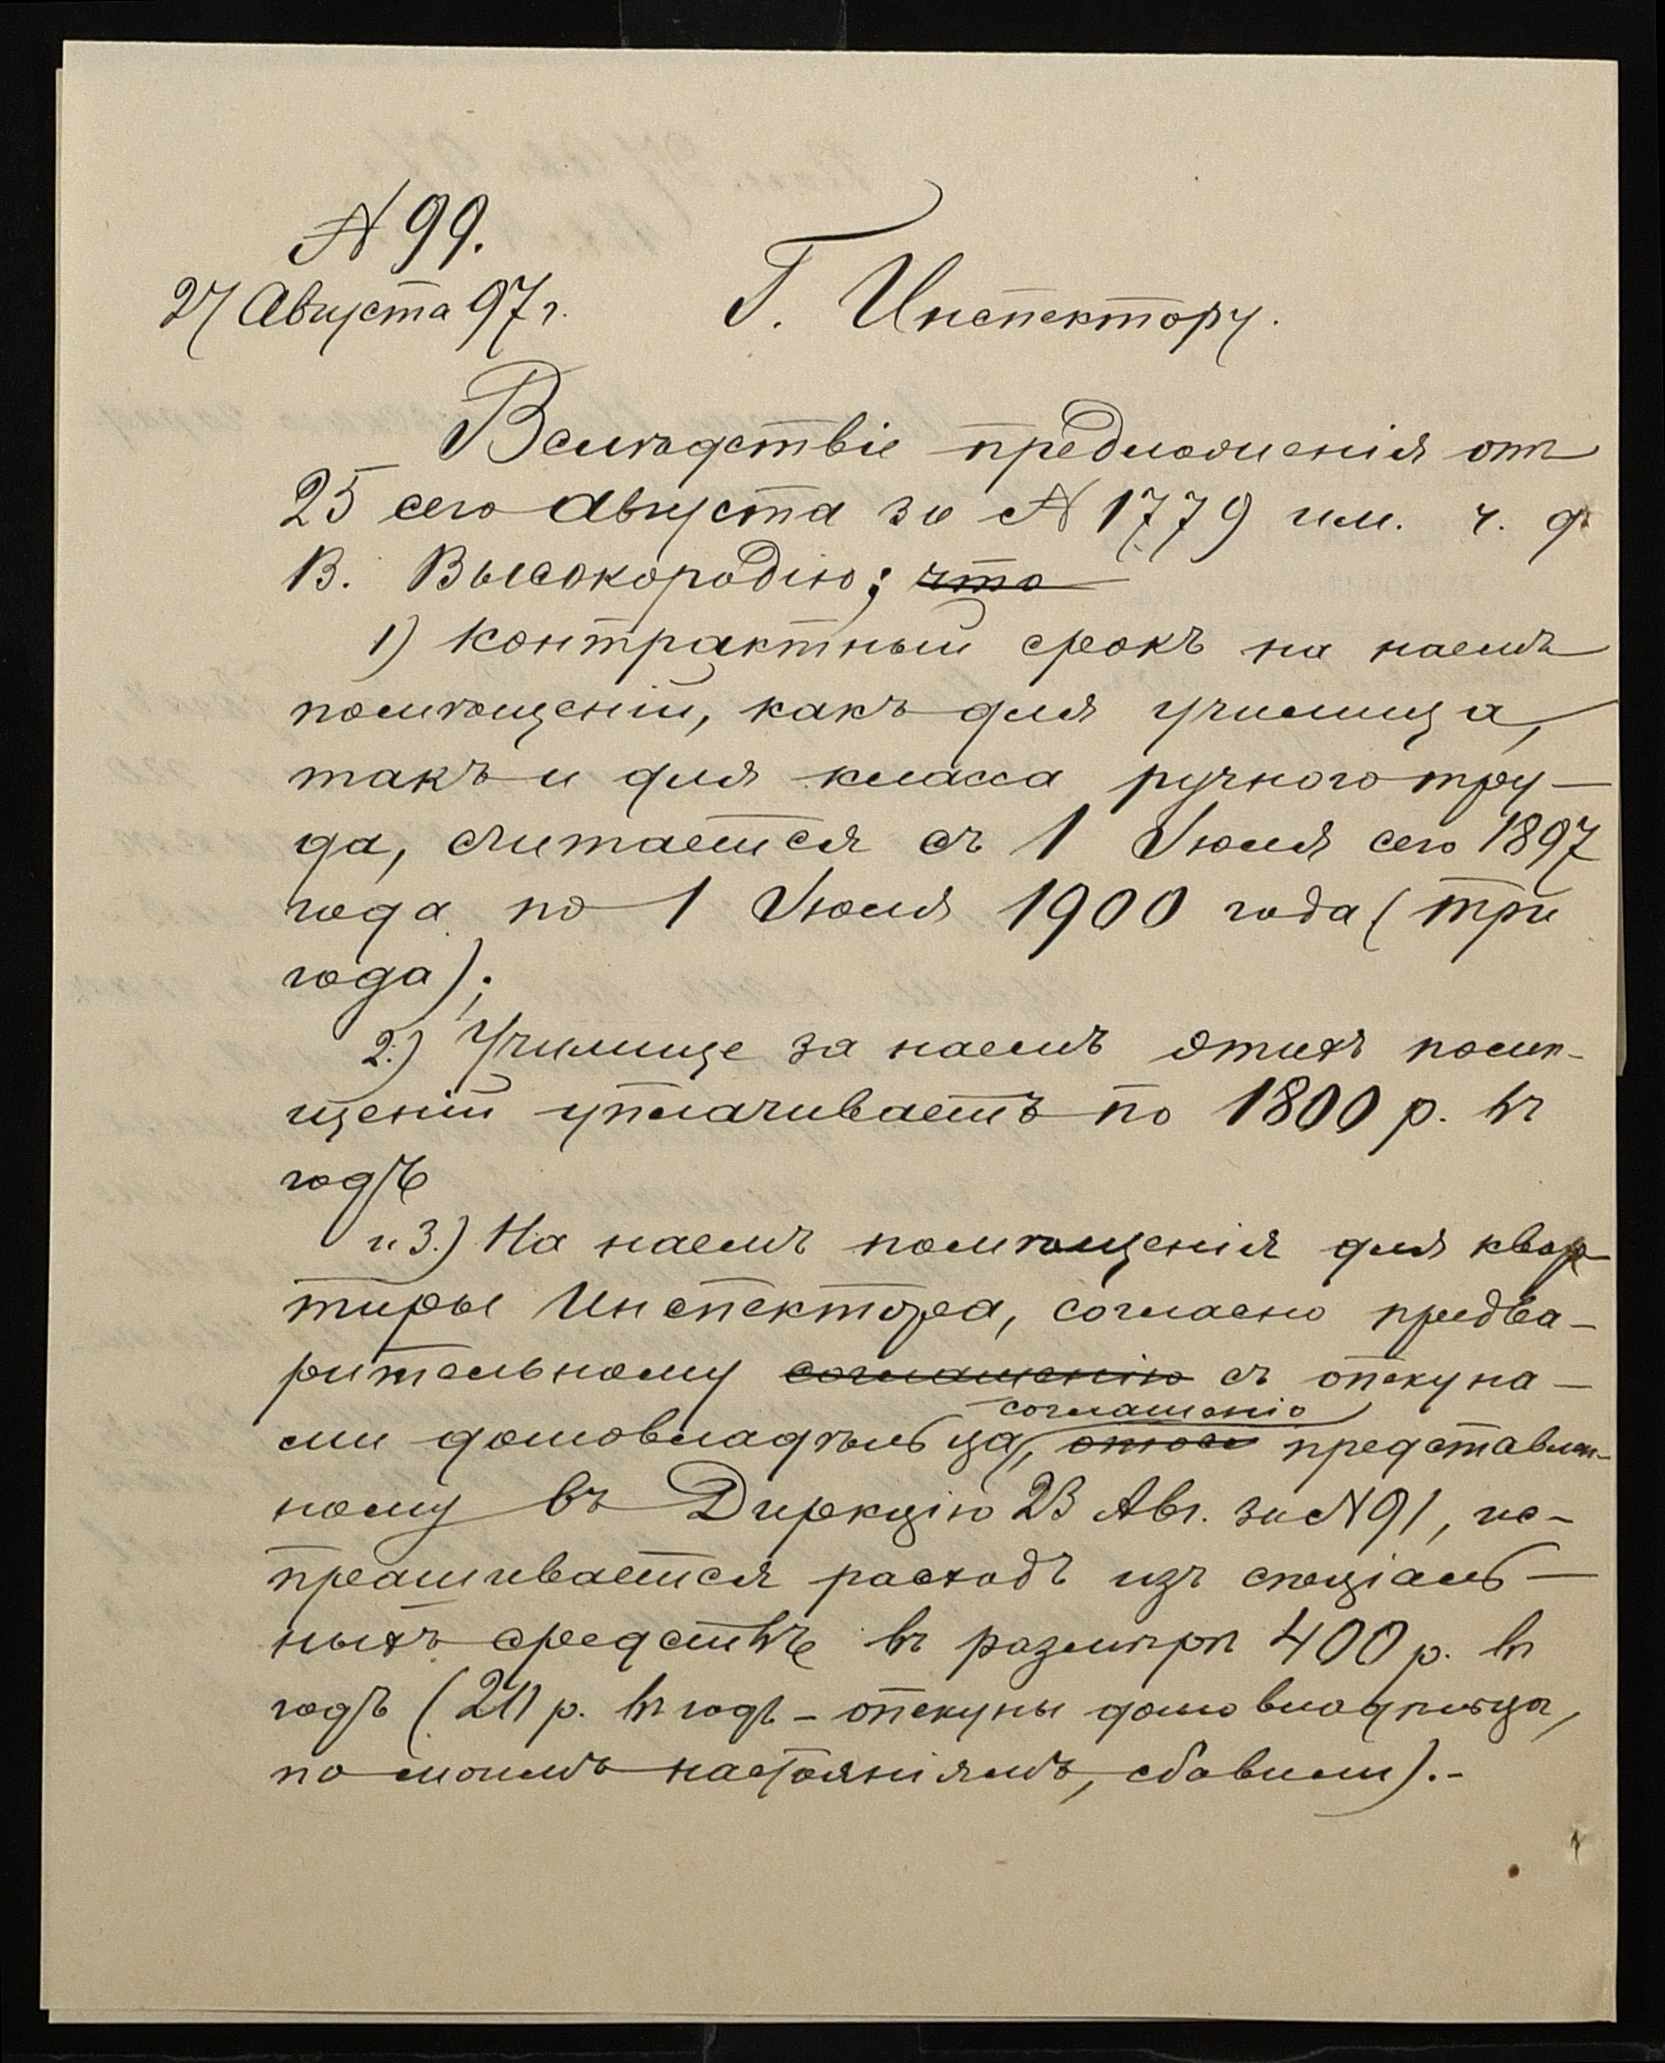 № 99.
27 Августа 97 г.
Г. Инспектору.
Вслѣдствіе предложенія отъ
25 сего Августа за № 1779 им. ч. д.
В. Высокородію; что
1) Контрактный срокъ на наемъ
помѣщеній, какъ для училища,
такъ и для класса ручного тру-
да, считается съ 1 Іюля сего 1897
года по 1 Іюля 1900 года (три
года);
2.) Училище за наемъ этихъ помѣ-
щеній уплачиваетъ по 1800 р. въ
годъ
и 3.) На наемъ помѣщенія для квар-
тиры Инспектора, согласно предва-
рительному соглашенію съ опекуна-
соглашенію
ми домовладѣльца, представлен-
ному въ Дирекцію 23 Авг. за № 91, ис-
прашивается расходъ изъ спеціаль-
ныхъ средствъ въ размѣрѣ 400 р. въ
годъ ( р. въ годъ - опекуны домовладѣльца,
по моимъ настояніямъ, сбавили).-